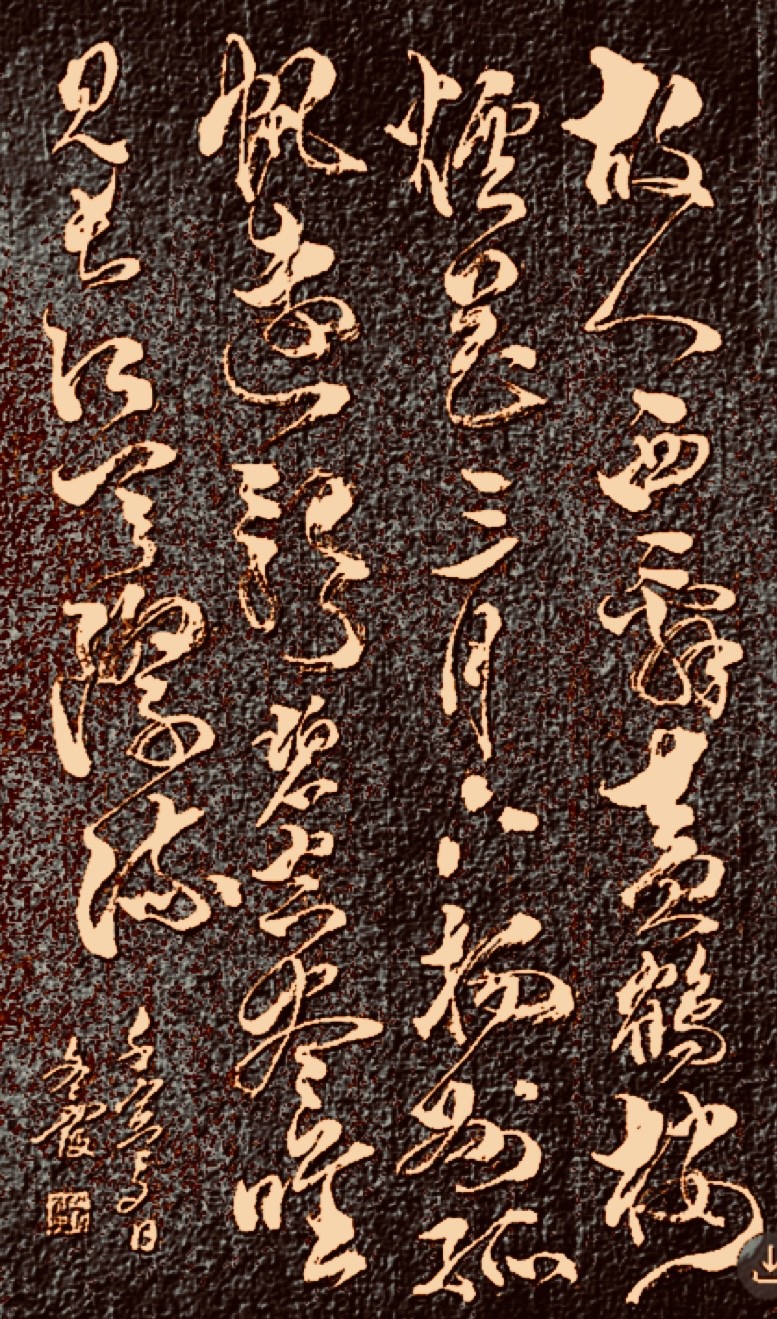 故人西辭黃鶴樓
煙花三月下揚州孤
帆遠影碧空盡唯
見長江天際流
壬寅